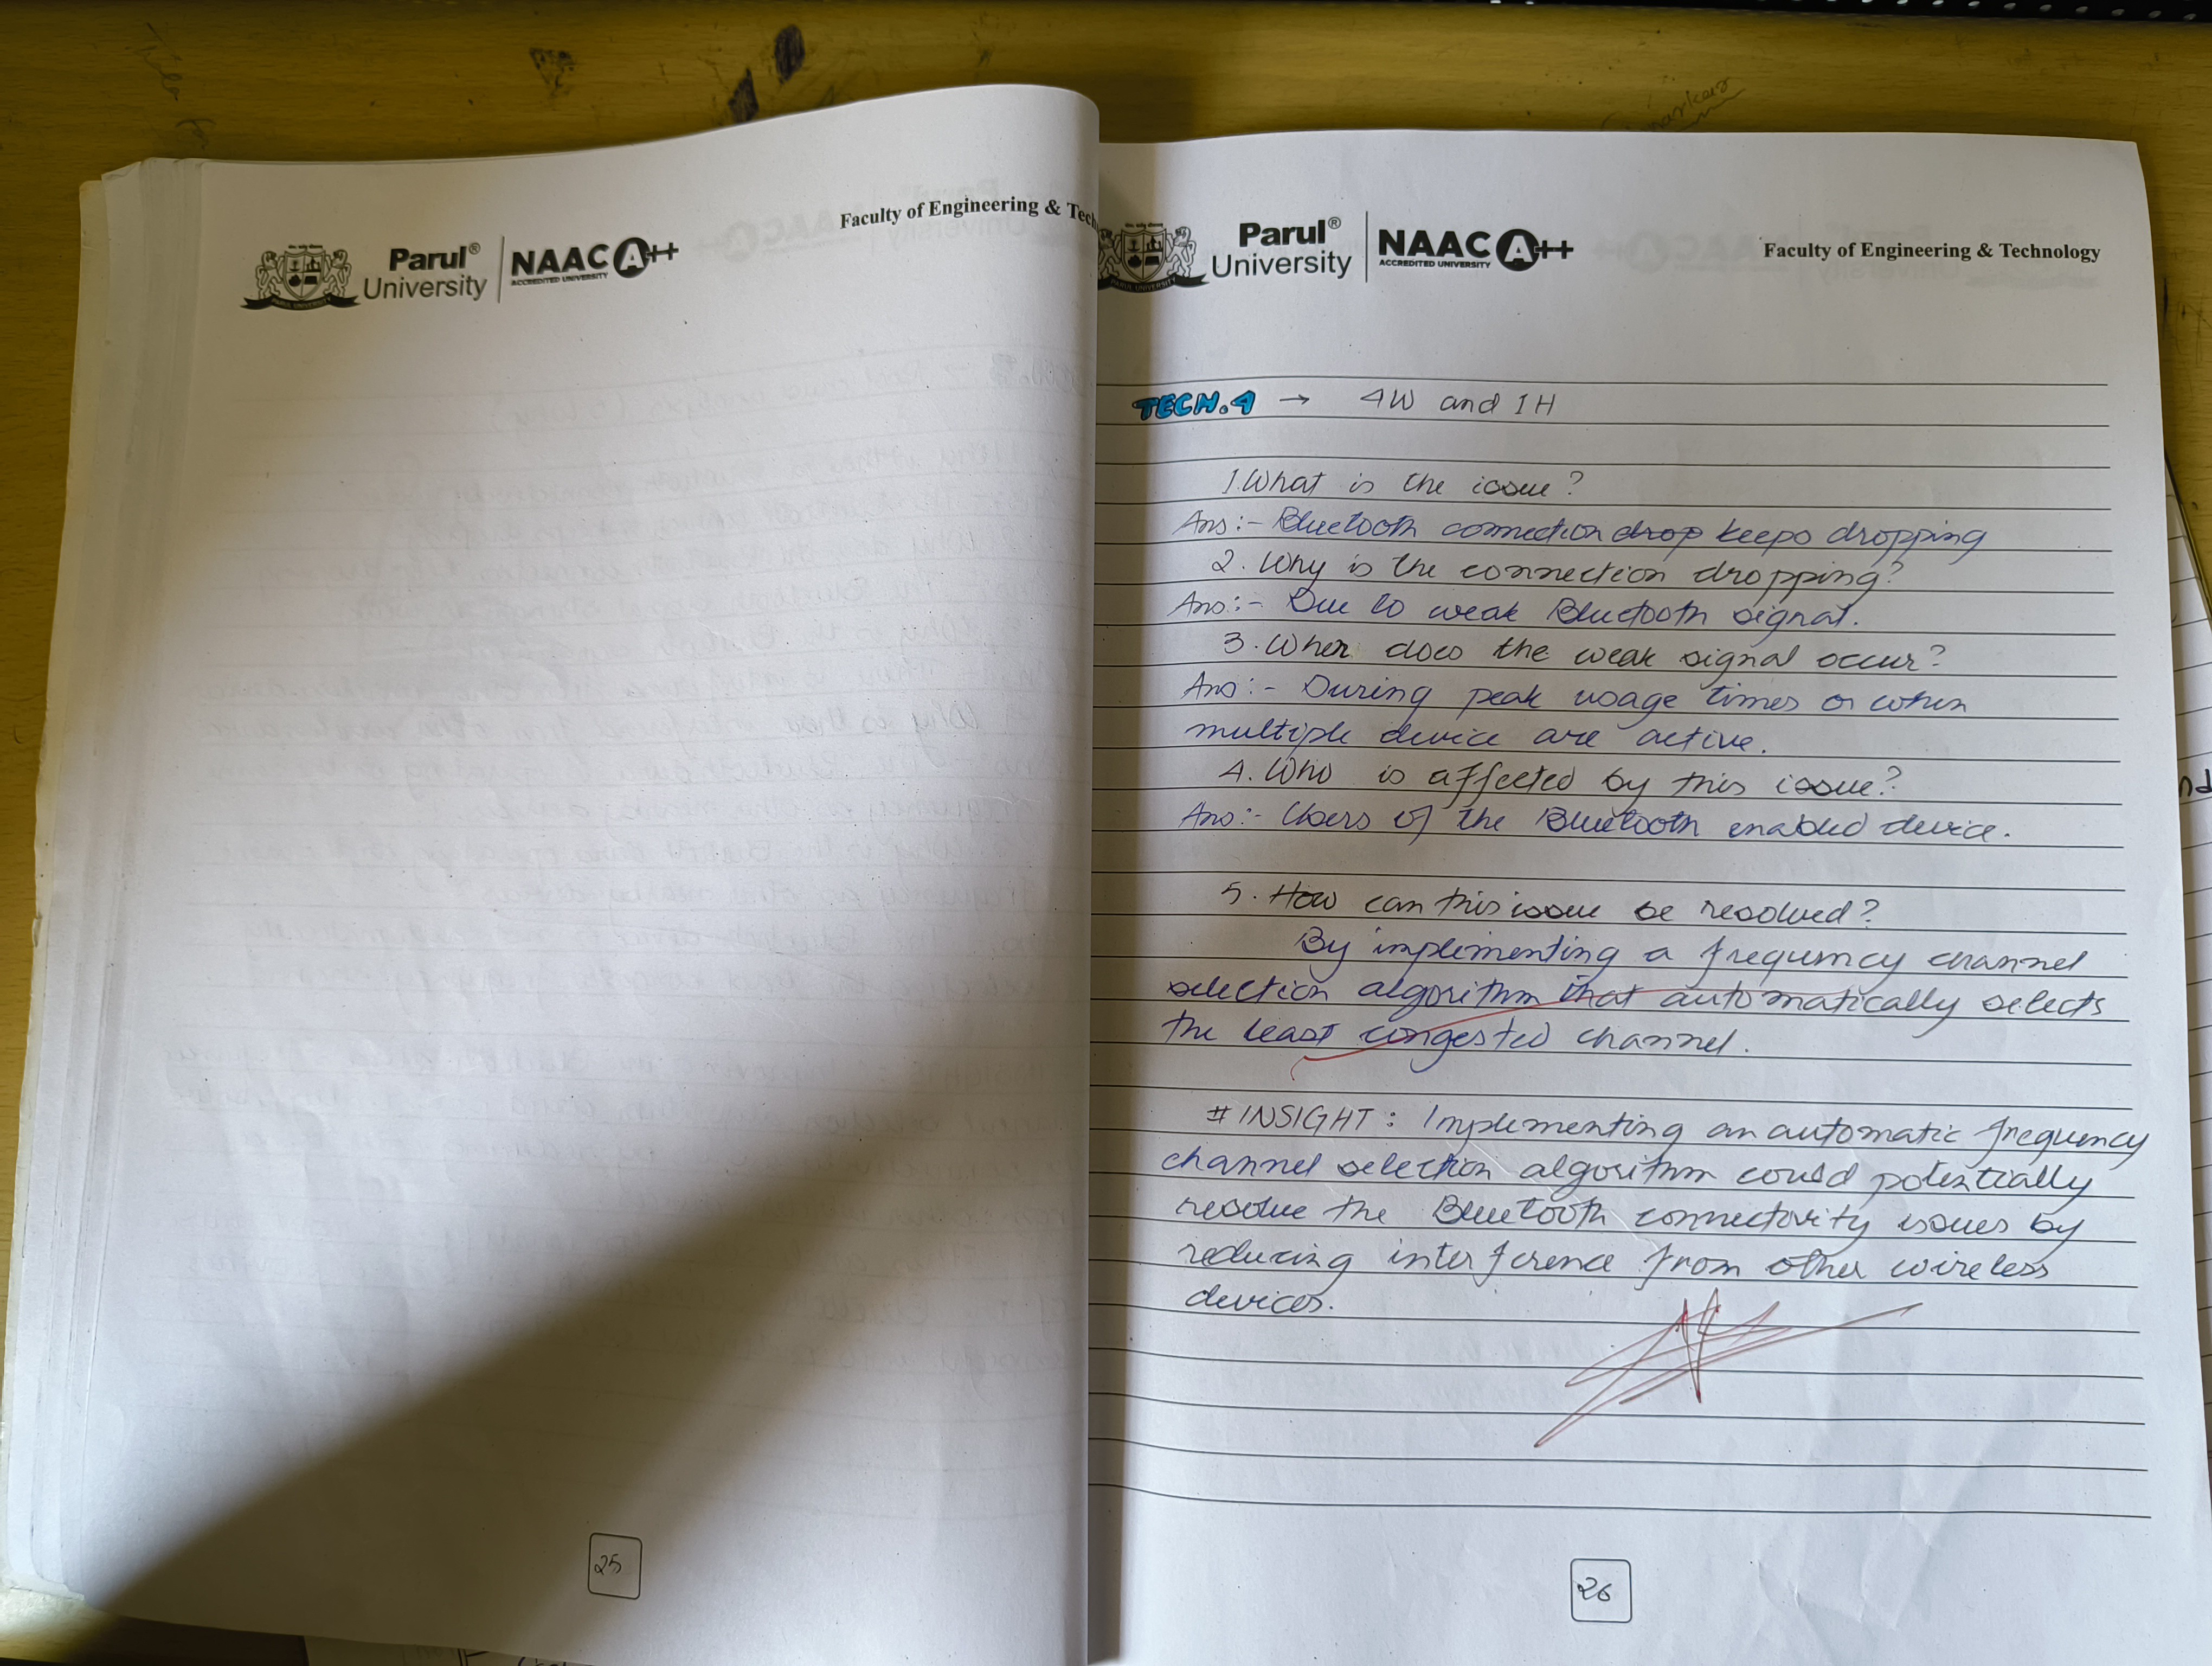 Faculty of Engineering & Tech
Parul®
University
NAAC A++
ACCREDITED UNIVERSITY
PARUL UNIVERSITY
25
Parul®
University
NAAC A++
ACCREDITED UNIVERSITY
PARUL UNIVERSITY
Faculty of Engineering & Technology
TECH.4 → 4W and 1H
1. What is the issue?
Ans:- Bluetooth connection drop keeps dropping
2. Why is the connection dropping?
Ans:- Due to weak Bluetooth signal.
3. When does the weak signal occur?
Ans:- During peak usage times or when
multiple device are active.
4. Who is affected by this issue?
Ans:- Users of the Bluetooth enabled device.
5. How can this issue be resolved?
By implementing a frequency channel
selection algorithm that automatically selects
the least congested channel.
# INSIGHT: Implementing an automatic frequency
channel selection algorithm could potentially
resolve the Bluetooth connectivity issues by
reducing interference from other wireless
devices.
26